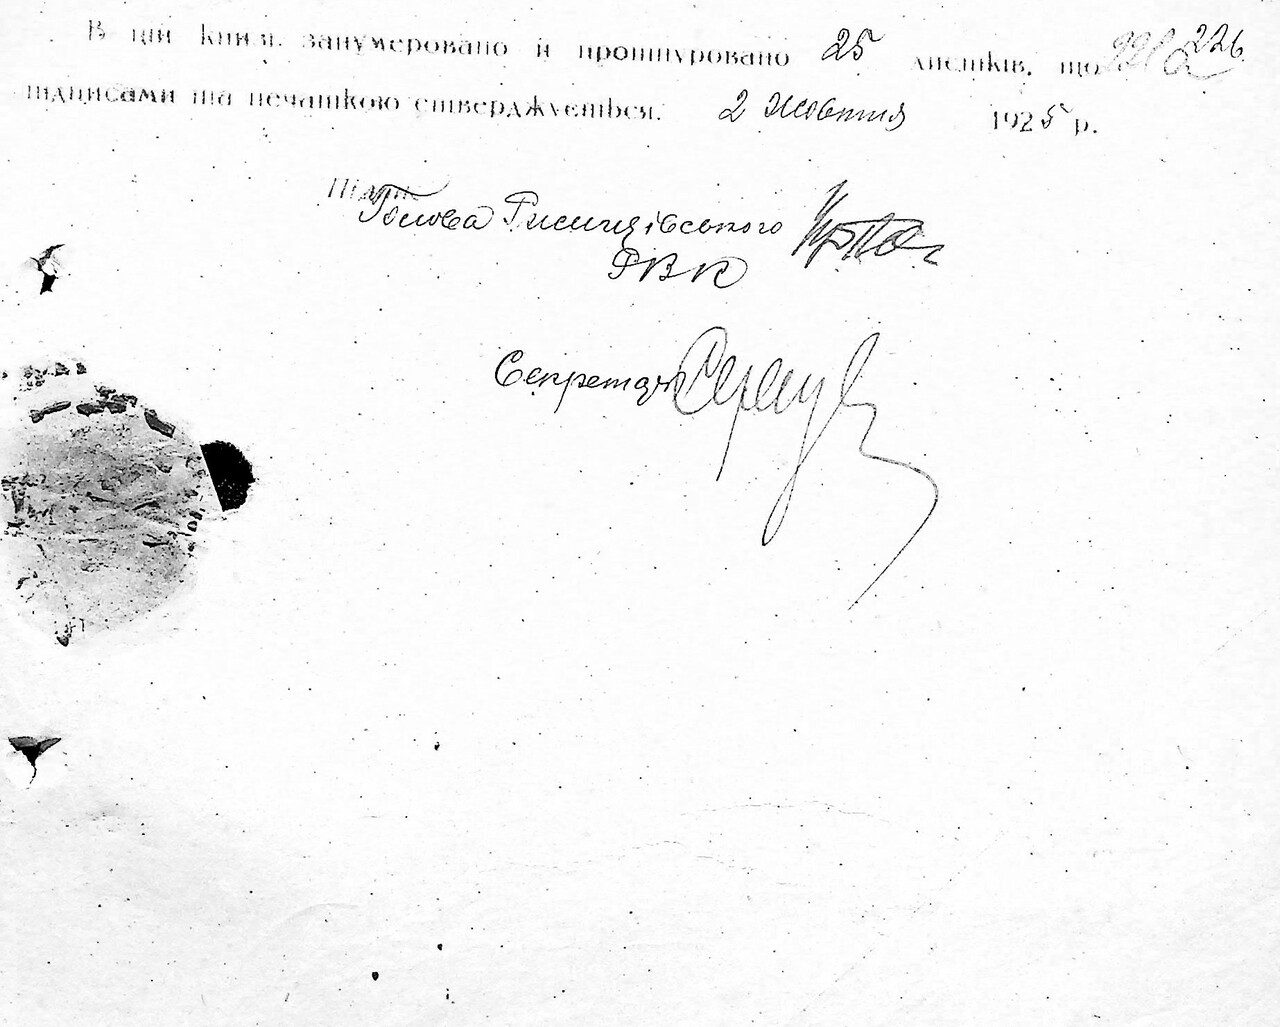 В цій книзі занумеровано й прошнуровано 25 листків, що 226
підписами та печаткою стверджується. 2 жовтня 1925 р.
Підпис
Голова
РВК
Секретар